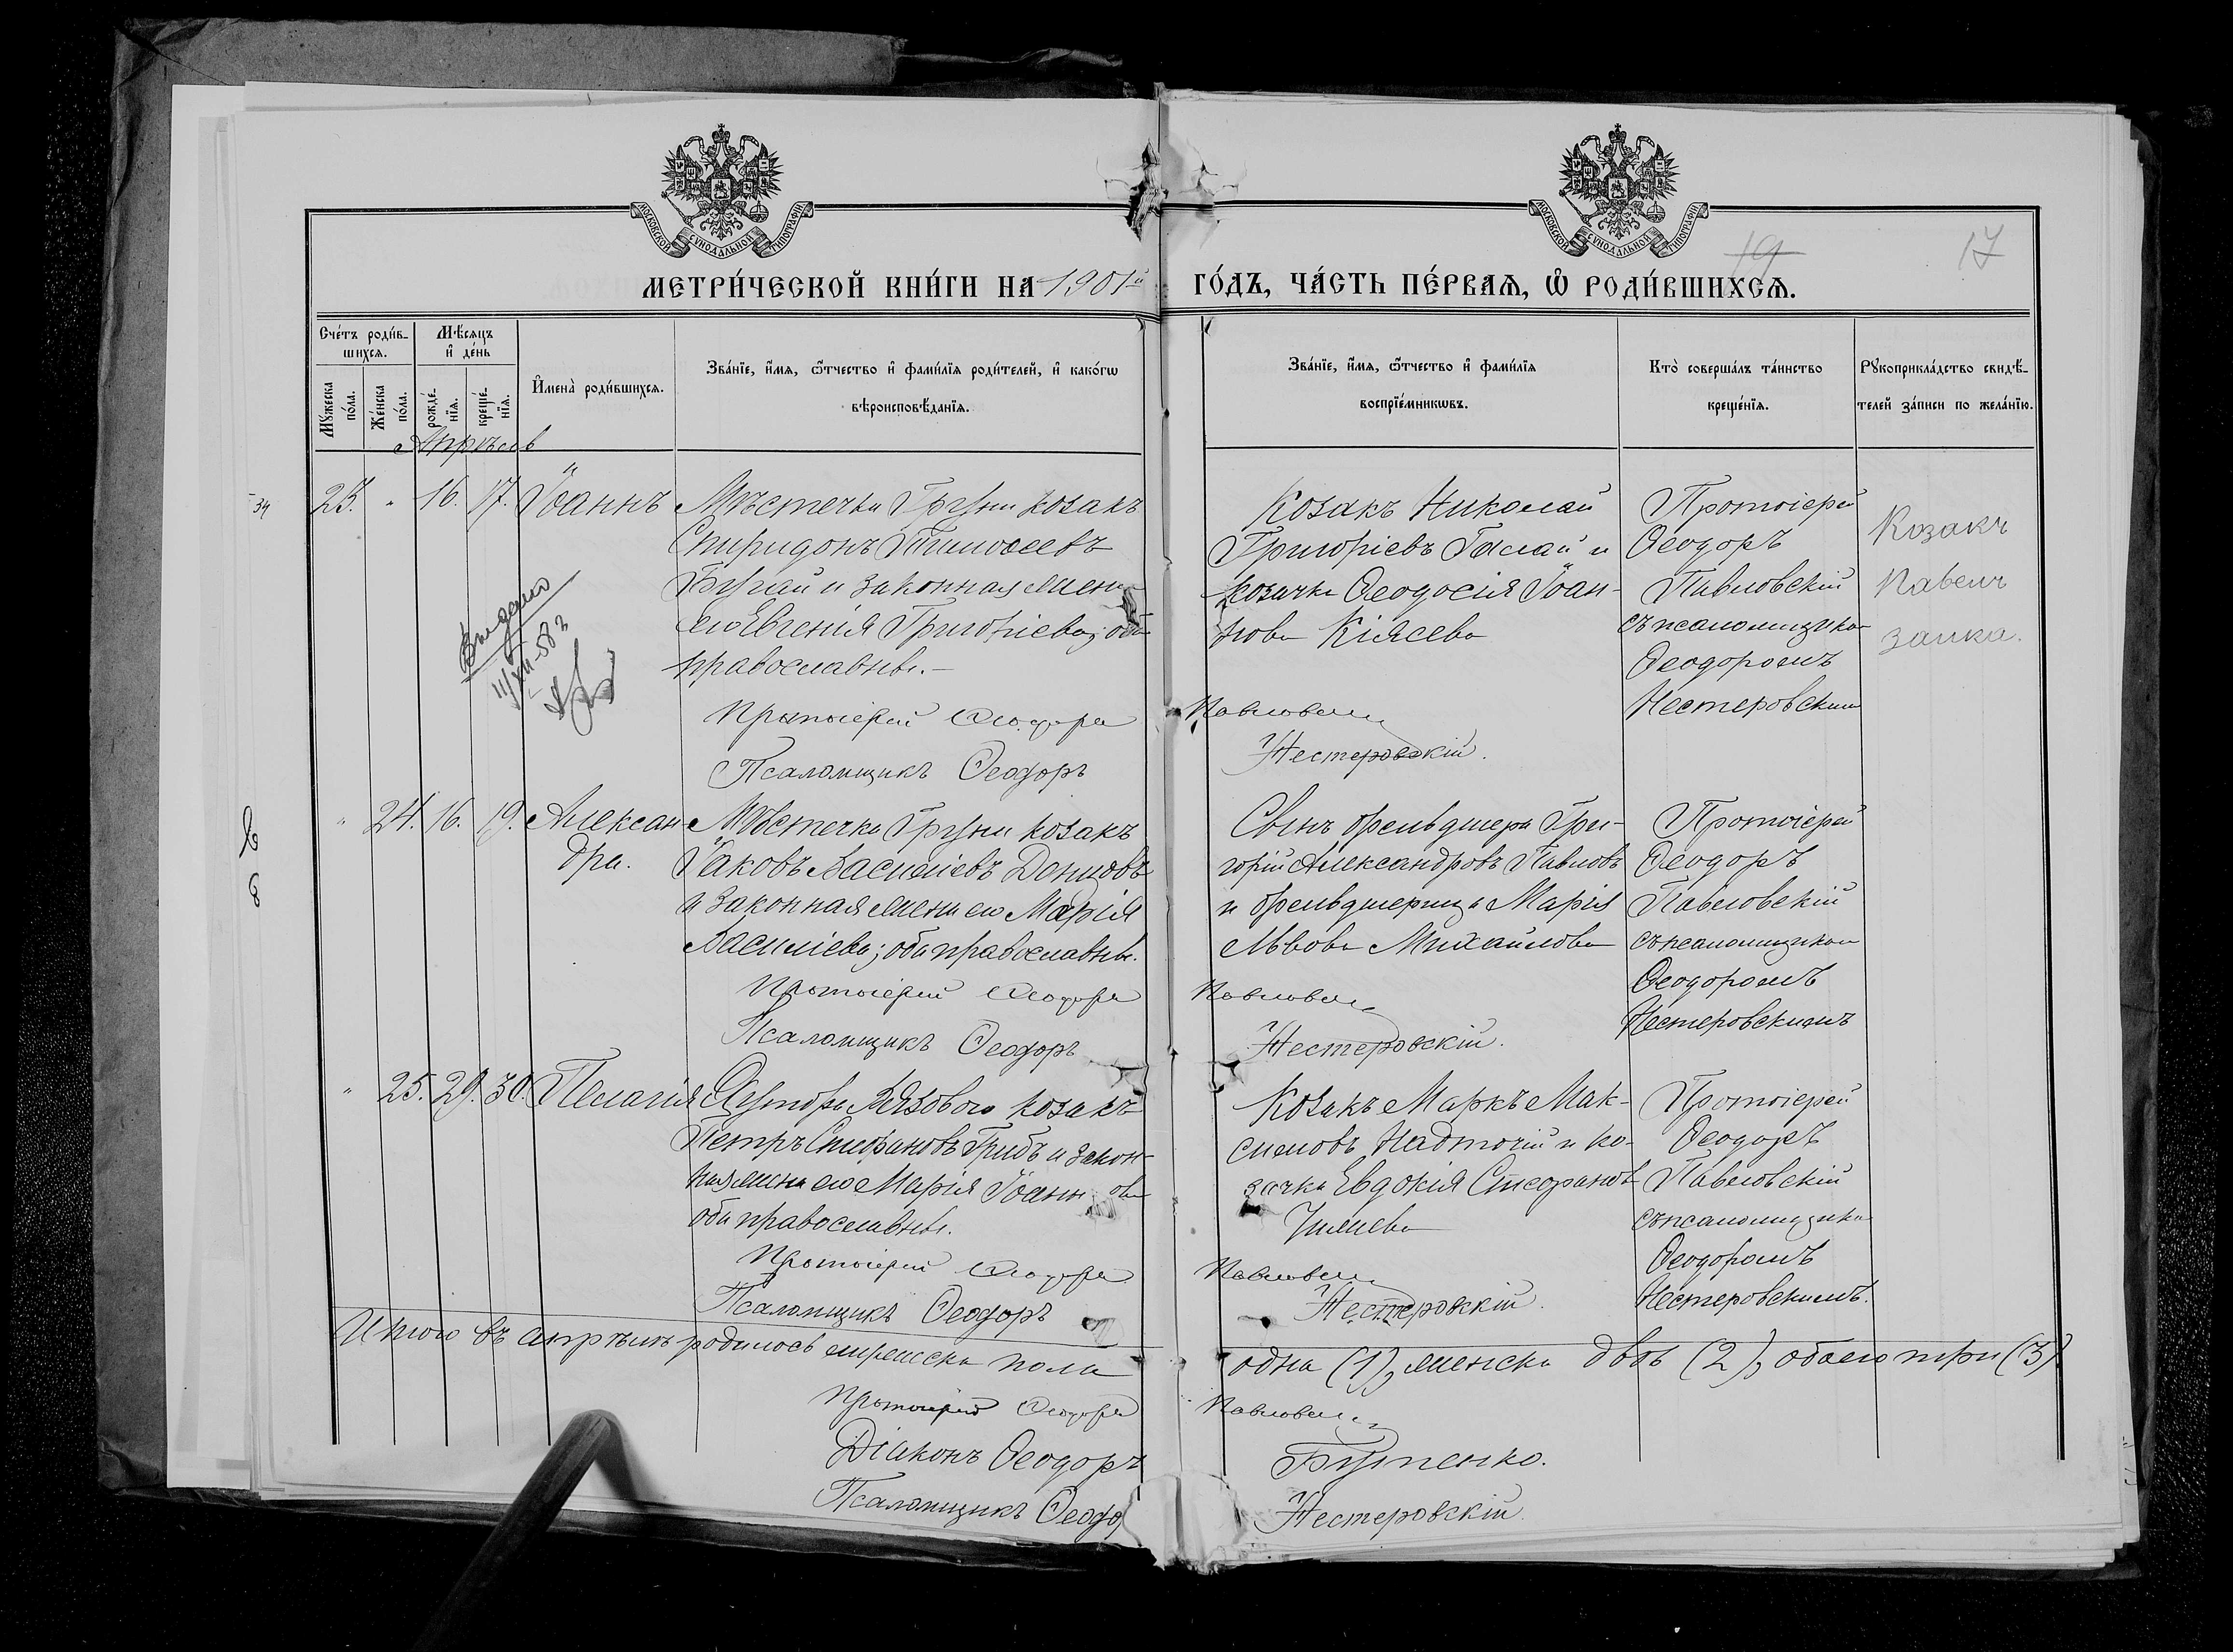 МОСКОВСКОЙ СѴНОДАЛЬНОЙ ТИПОГРАФІИ
МОСКОВСКОЙ СѴНОДАЛЬНОЙ ТИПОГРАФІИ
19
17
МЕТРИ́ЧЕСКОЙ КНИ́ГИ НА 1901й ГО́ДЪ, ЧА́СТЬ ПЕ́РВАѦ, Ѡ҆ РОДИ́ВШИХСѦ.
Сче́тъ роди́в-
шихсѧ.
Мѣ́сѧцъ
и҆ де́нь
Мꙋ́жеска
по́ла.
Же́нска
по́ла.
рожде́-
нїѧ.
креще́-
нїѧ.
И҆мена̀ роди́вшихсѧ.
Зва́нїе, и҆́мѧ, ѻ҆́тчество и҆ фами́лїѧ роди́телей, и҆ како́гѡ
вѣроисповѣ́данїѧ.
Зва́нїе, и҆́мѧ, ѻ҆́тчество и҆ фами́лїѧ
воспрїе́мникѡвъ.
Кто̀ соверша́лъ та́инство
креще́нїѧ.
Рꙋкоприкла́дство свидѣ́-
телей за́писи по жела́нїю.
Апрѣль
34
23. " 16. 17. Іоаннъ
Мѣстечка Груни козакъ
Спиридонъ Тимоѳеевъ
Бугай и законная жена
его Евгенія Григоріева; оба
православные.-
Протоіерей Ѳеодоръ
Псаломщикъ Ѳеодоръ
Козакъ Николай
Григоріевъ и
козачка Ѳеодосія Іоан-
нова
Павловскій
Нестеровскій.
Протоіерей
Ѳеодоръ
Павловскій
съ псаломщико
Ѳеодоромъ
Нестеровским
Козакъ
Павелъ
Заика.
Выдано
11/XII-58г
" 24. 16. 19. Алексан-
дра.
Мѣстечка Груни козакъ
Іаковъ Василіевъ
и законная жена его Марія
Василіева; оба православные.
Протоіерей Ѳеодоръ
Псаломщикъ Ѳеодоръ
Сынъ фельдшера Гри-
горій Александровъ Павловъ
и фельдшерица Марія
Львова Михайлова
Павловскій
Нестеровскій.
Протоіерей
Ѳеодоръ
Павловскій
съ псаломщиком
Ѳеодоромъ
Нестеровскимъ
" 25. 29. 30. Пелагія
Хутора Вязового козакъ
Петръ Стефановъ Грибъ и закон-
ная жена его Марія Іоаннова
оба православные.
Протоіерей Ѳеодоръ
Псаломщикъ Ѳеодоръ
Козакъ Маркъ Мак-
симовъ Надточій и ко-
зачка Евдокія Стефанов
Павловскій
Нестеровскій.
Протоіерей
Ѳеодоръ
Павловскій
съ псаломщико
Ѳеодоромъ
Нестеровскимъ.
Итого въ апрѣлѣ родилось мужеска пола одна (1), женска двѣ (2), обоего три (3)
Протоіерей Ѳеодоръ Павловскій
Діаконъ Ѳеодоръ Бутенко.
Псаломщикъ Ѳеодо Нестеровскій